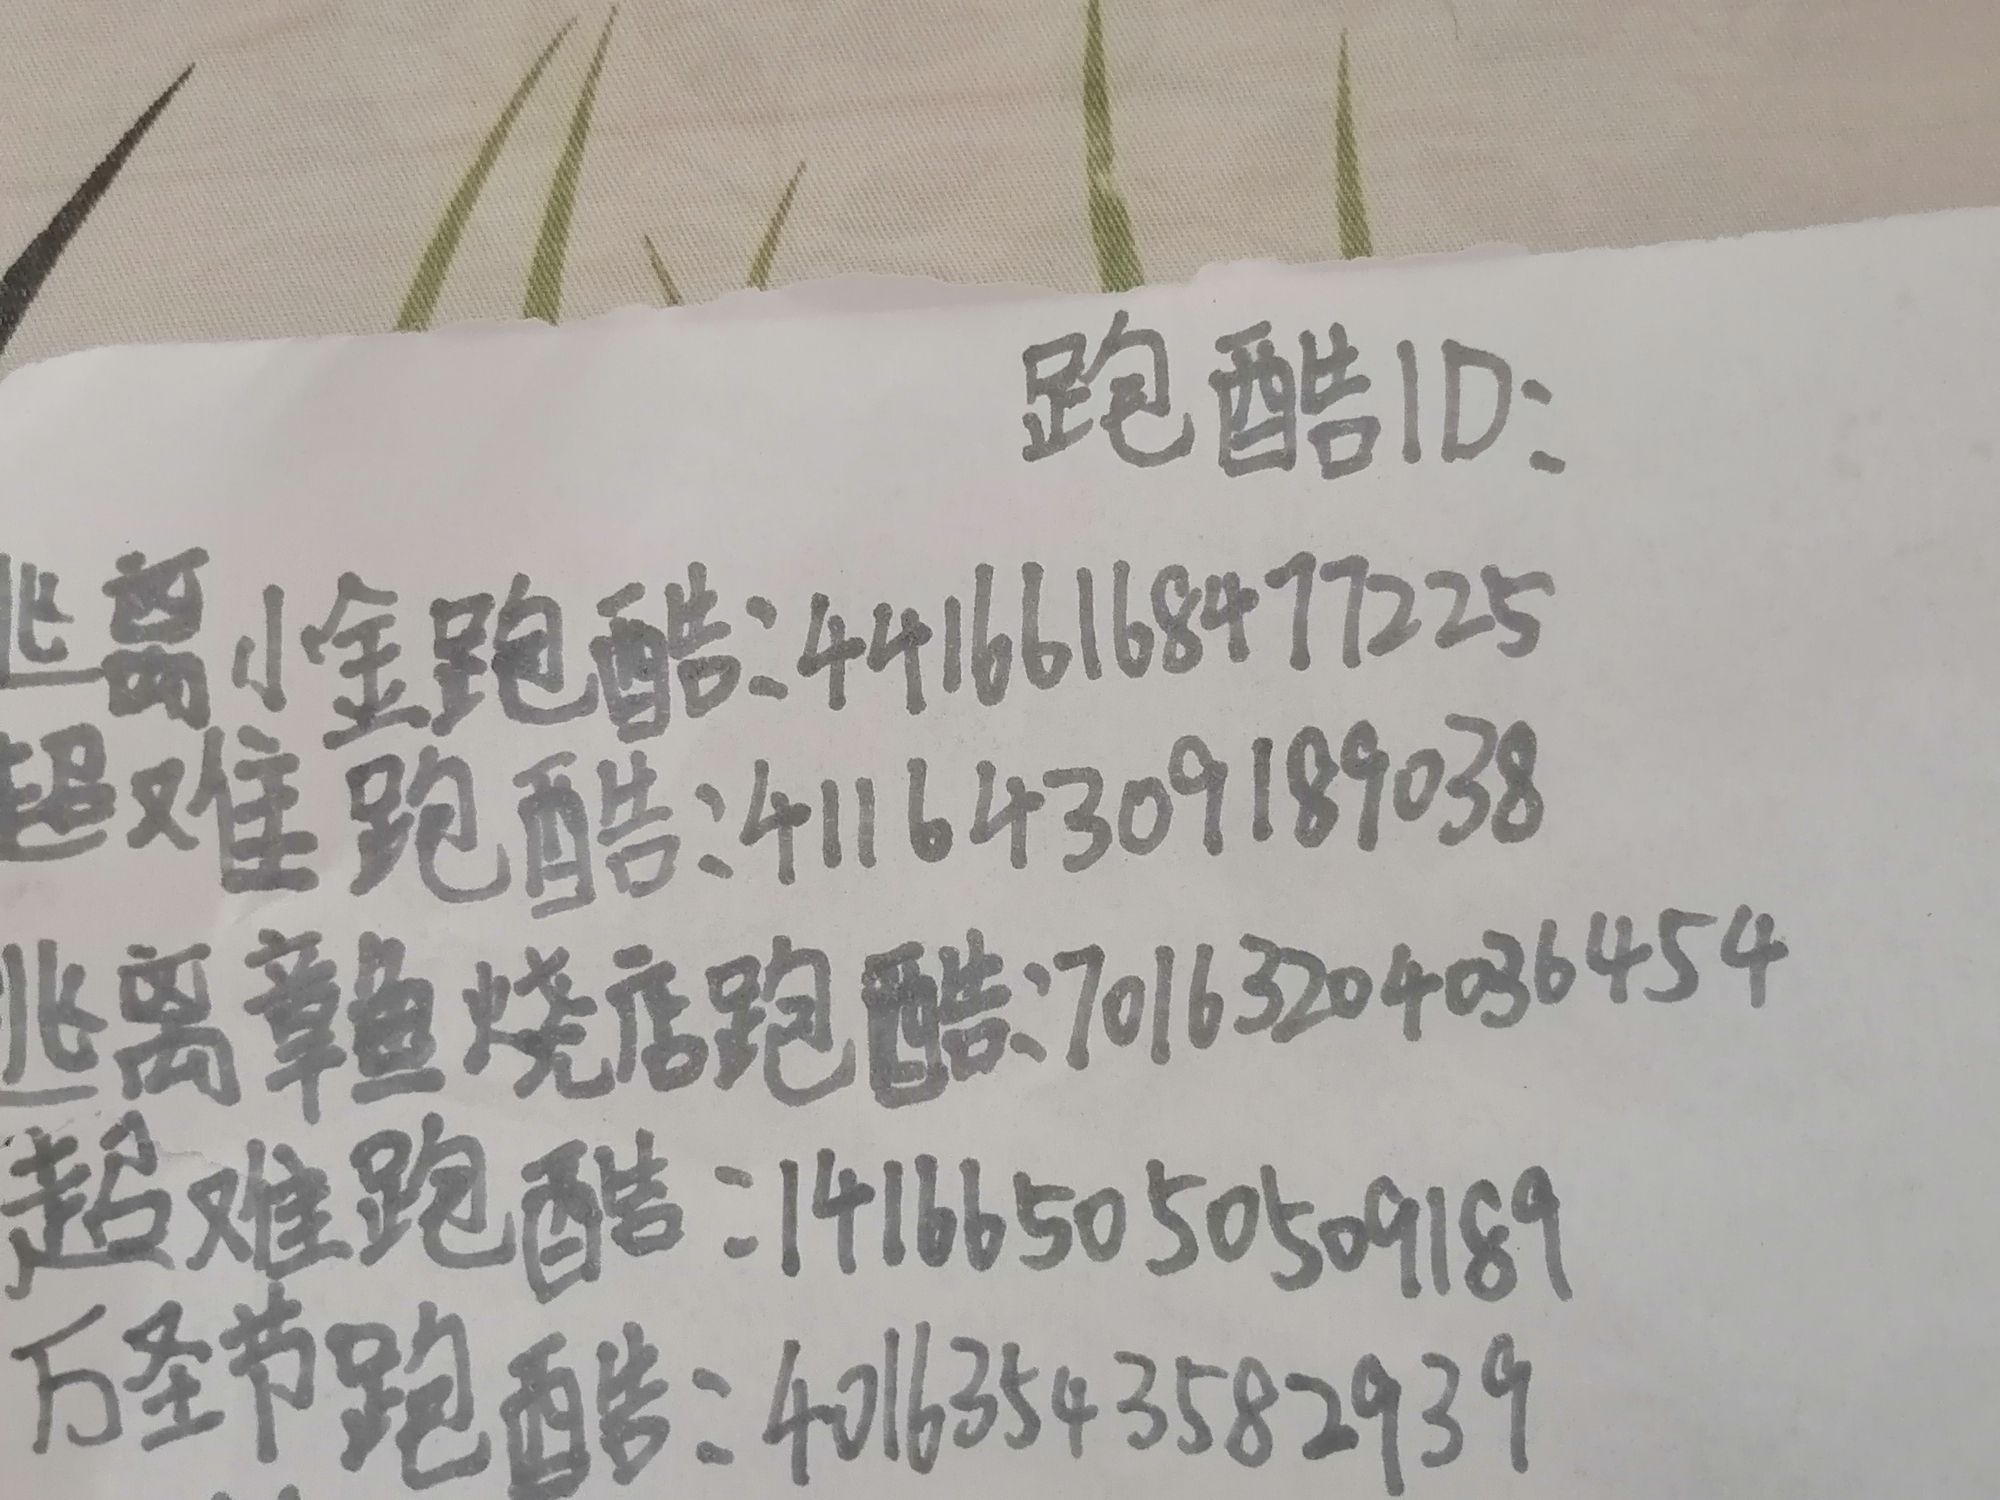 跑酷ID:
逃离小金跑酷:44166168477225
超难跑酷:41164309189038
逃离章鱼烧店跑酷:70163204036454
超难跑酷:14166505050 9189
万圣节跑酷:40163543582939